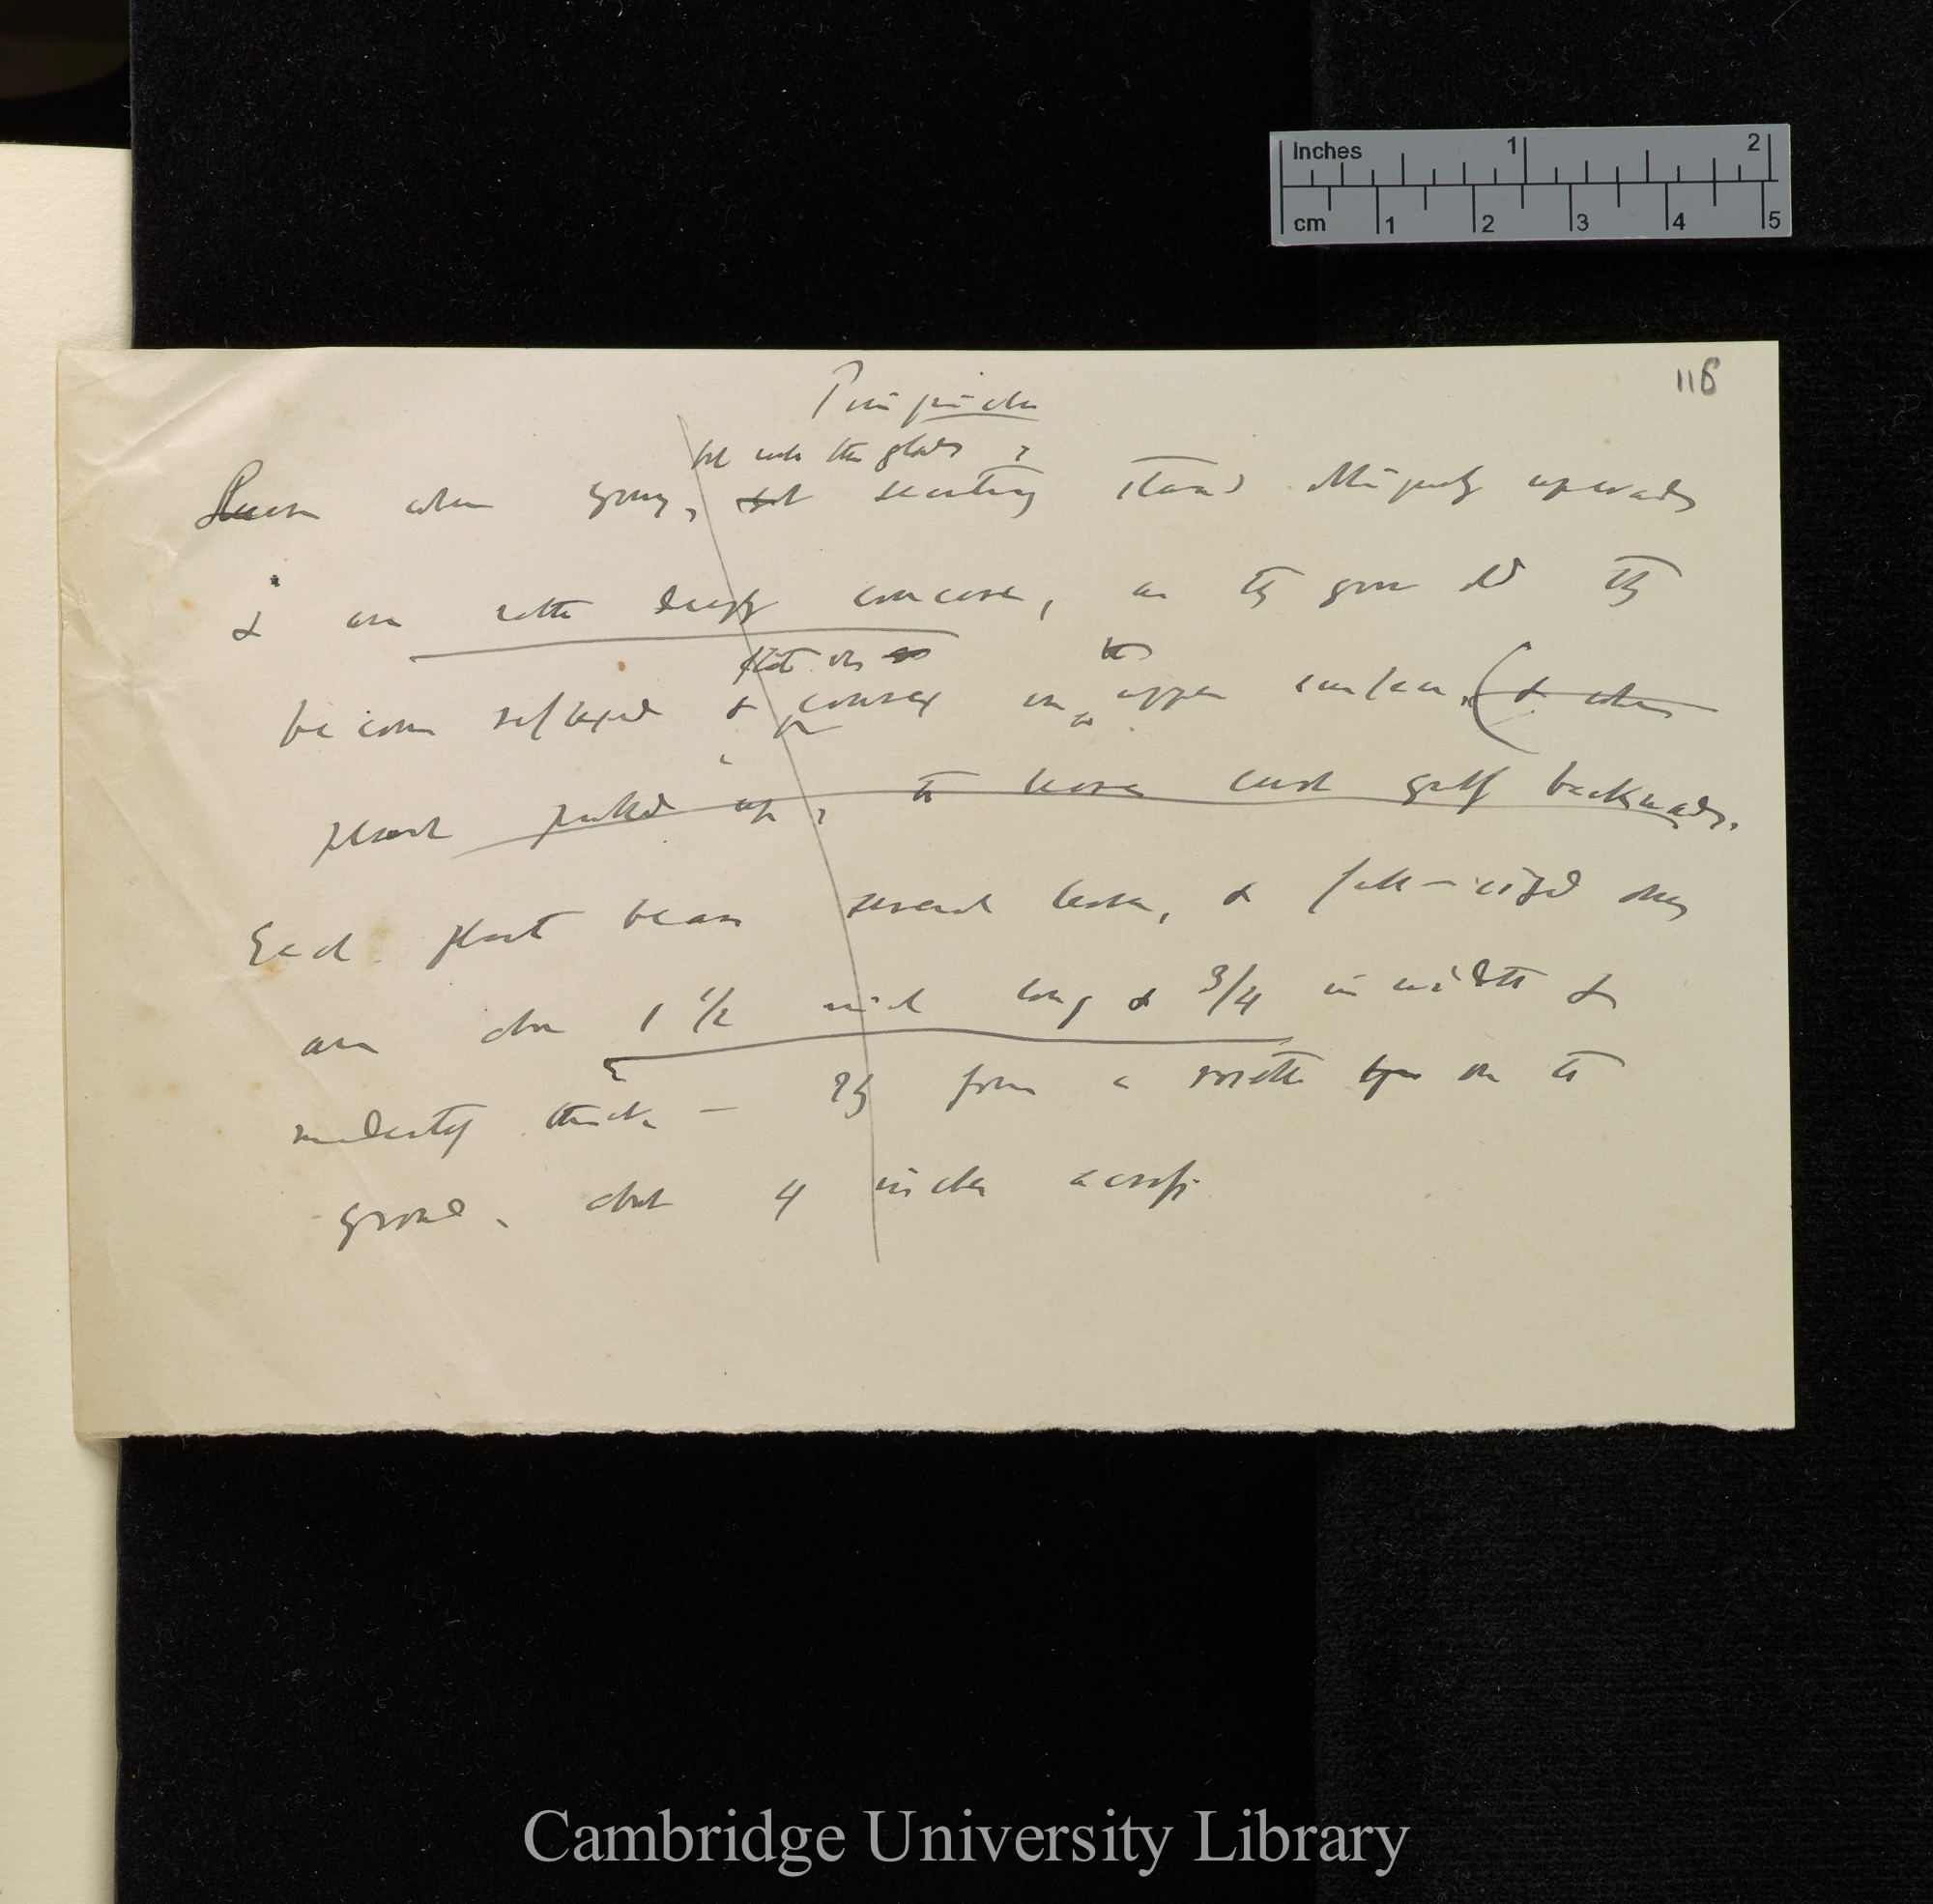 Inches 1 2
cm 1 2 3 4 5
118
Pinguicula
but with the glands,
Leaves when young, but secreting stand obliquely upwards
& are rather deeply concave, as they grow old they
flat or the
become reflexed & convex on upper surface, (& when
plant pulled up, the leaves curl greatly backwards.
Each plant bears several leaves, & full-sized ones
are about 1 1/2 inch long & 3/4 in width &
moderately thick — They form a rosette on the
ground, about 4 inches across.
Cambridge University Library